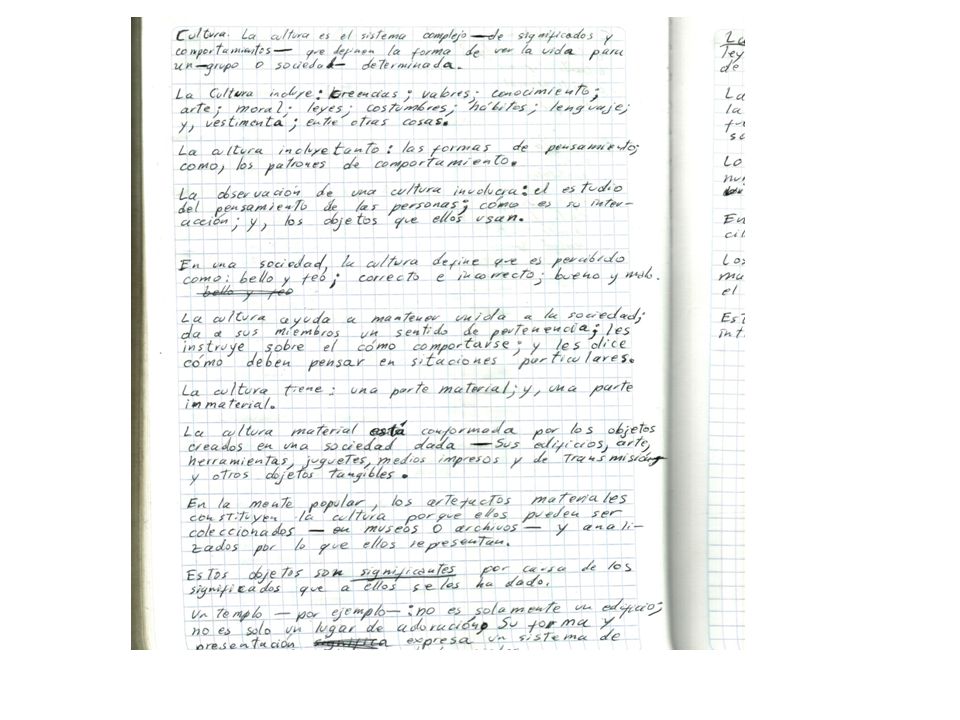 Cultura. La cultura es el sistema complejo — de significados y
comportamientos — que definen la forma de ver la vida para
un — grupo o sociedad — determinada.
La Cultura incluye: creencias; valores; conocimiento;
arte; moral; leyes; costumbres; hábitos; lenguaje;
y, vestimenta; entre otras cosas.
La cultura incluye tanto: las formas de pensamiento;
como, los patrones de comportamiento.
La observación de una cultura involucra: el estudio
del pensamiento de las personas; cómo es su inter-
acción; y, los objetos que ellos usan.
En una sociedad, la cultura define que es percibido
como: bello y feo; correcto e incorrecto; bueno y malo.
bello y feo
La cultura ayuda a mantener unida a la sociedad;
da a sus miembros un sentido de pertenencia; les
instruye sobre el cómo comportarse; y les dice
cómo deben pensar en sitaciones particulares.
La cultura tiene: una parte material; y, una parte
inmaterial.
La cultura material está conformada por los objetos
creados en una sociedad dada — Sus edificios, arte,
herramientas, juguetes, medios impresos y de transmisión
y otros objetos tangibles.
En la mente popular, los artefactos materiales
constituyen la cultura porque ellos pueden ser
coleccionados — en museos o archivos — y anali-
zados por lo que ellos representan.
Estos objetos son significantes por causa de los
significados que a ellos se les ha dado.
Un templo — por ejemplo —: no es solamente un edificio;
no es solo un lugar de adoración. Su forma y
presentación significa expresa un sistema de
La
ley
de
La
la
Lo
En
Los
el
Est
int